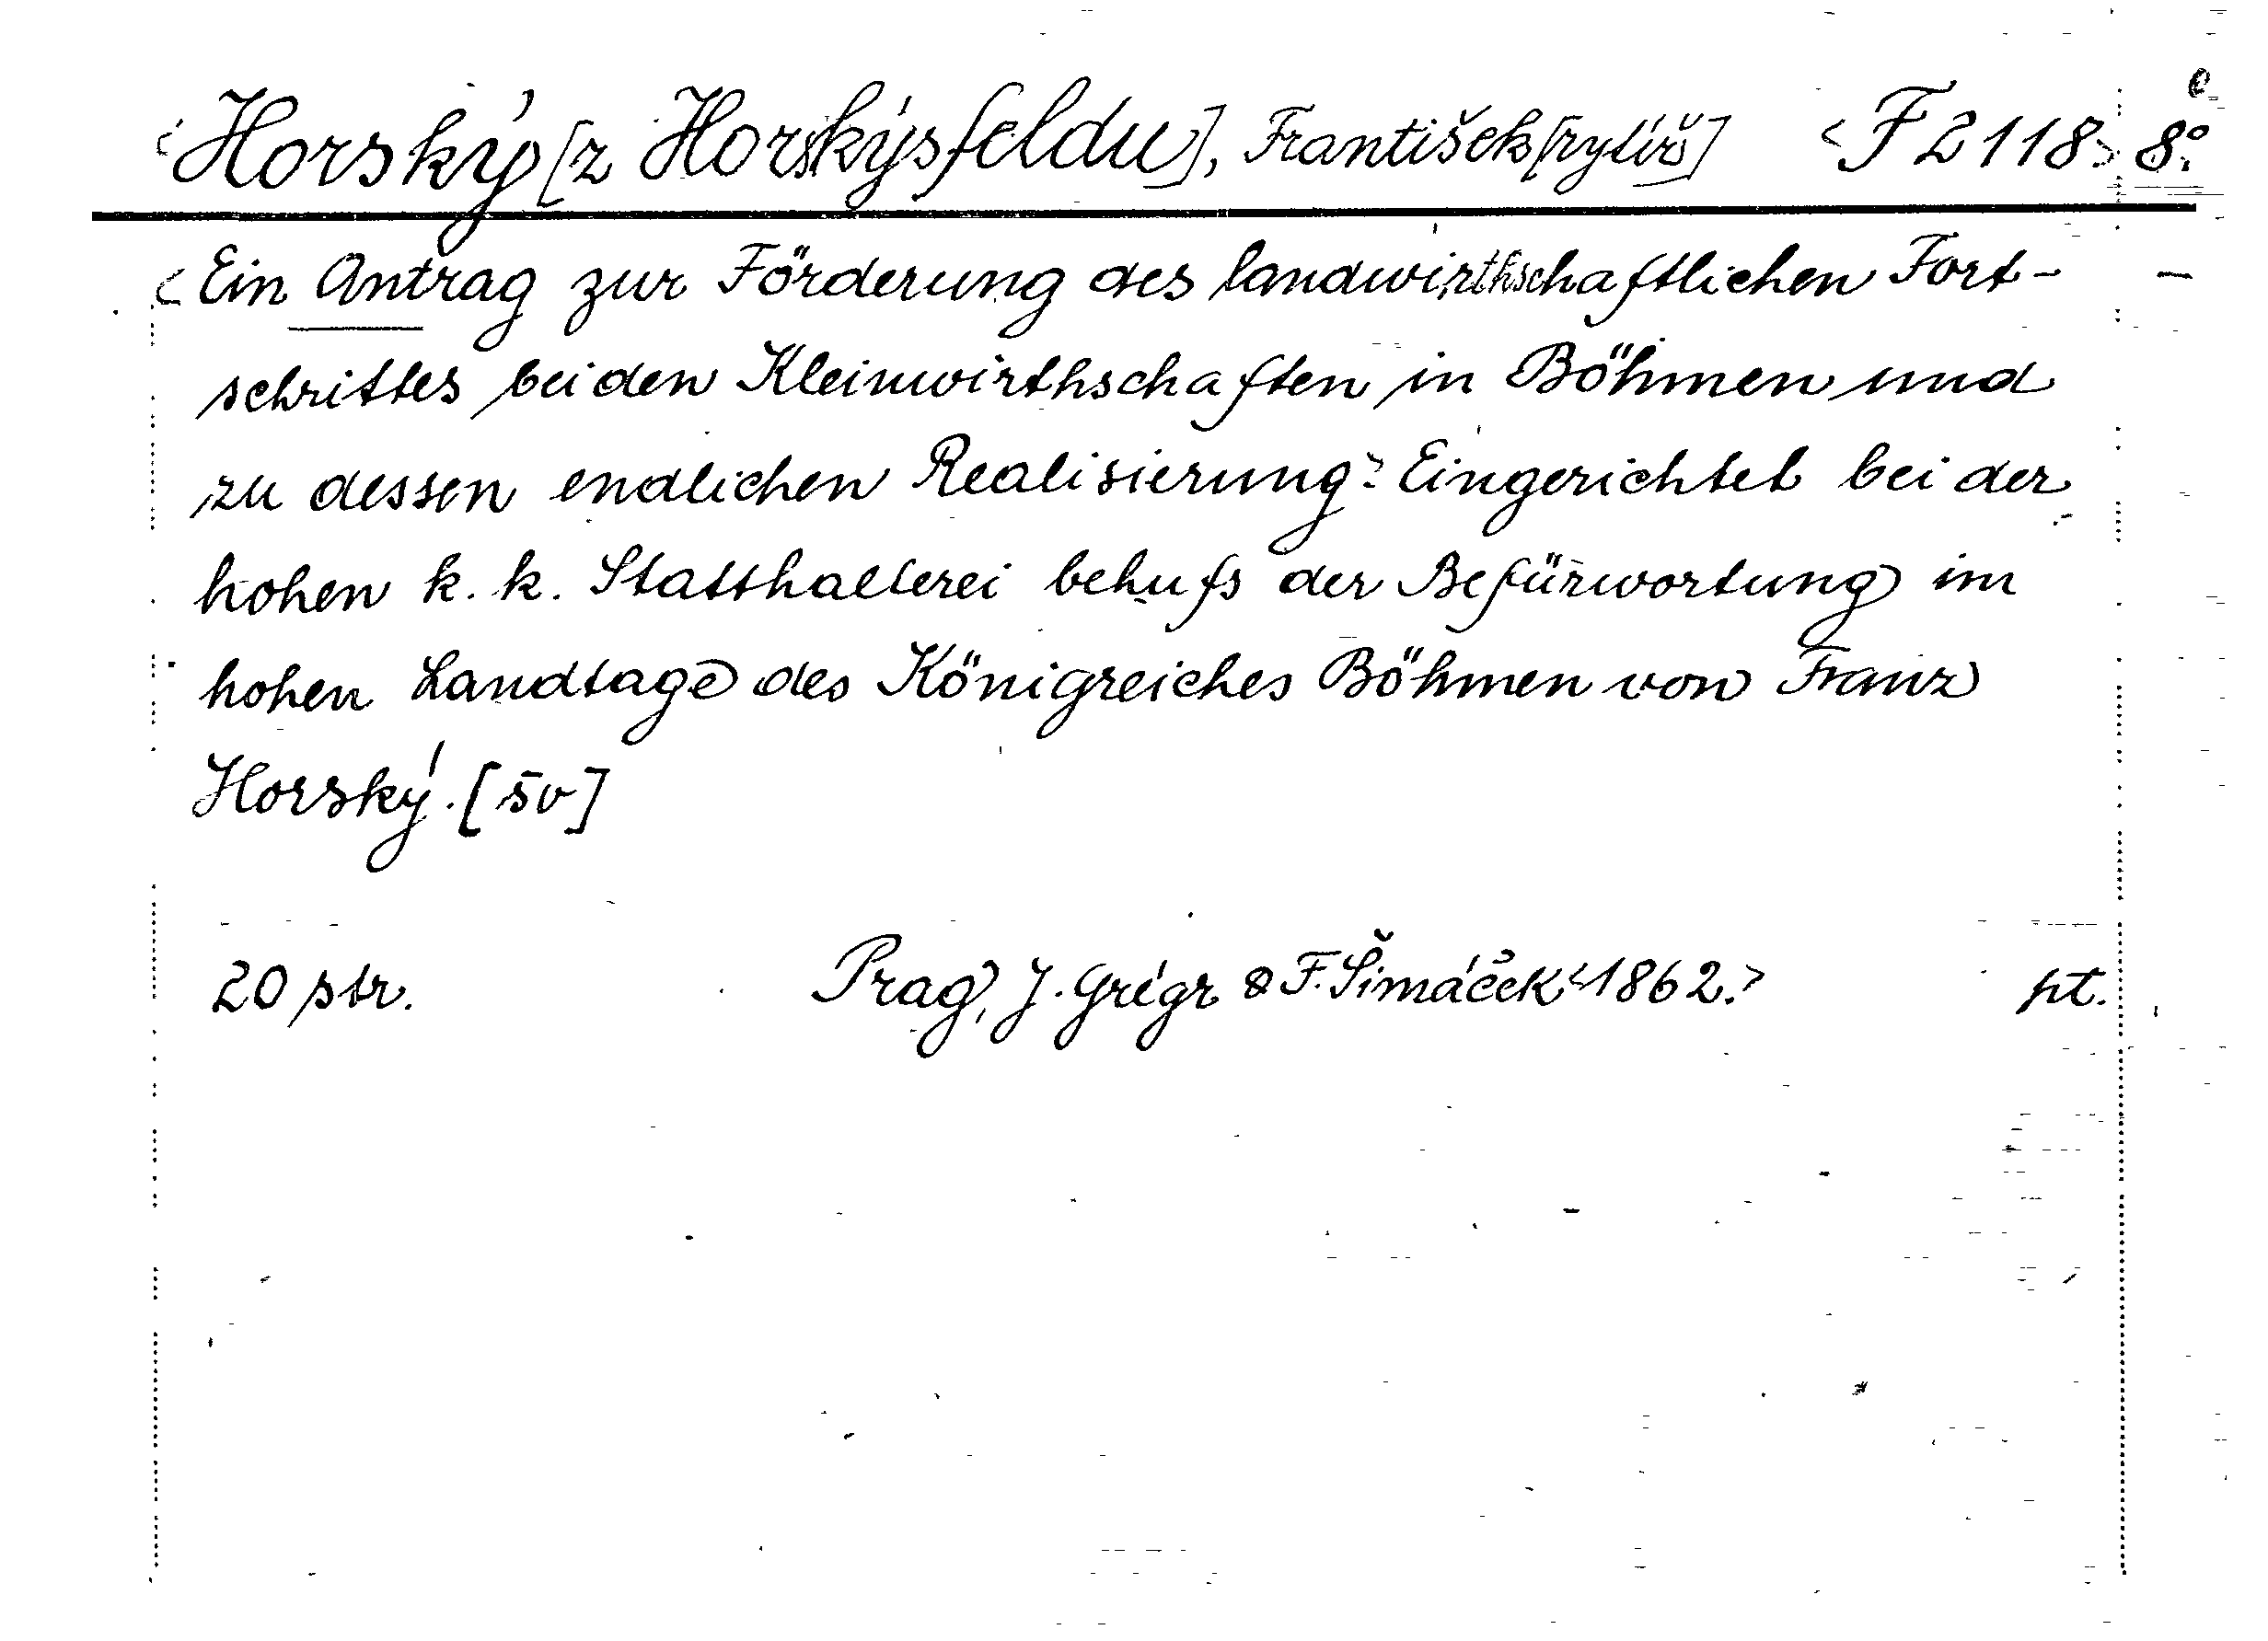 <Horský [z Horskýsfeldu], František [rytíř] <F 2118> 8°
<Ein Antrag zur Förderung des landwirthschaftlichen Fort-
schrittes bei den Kleinwirthschaften in Böhmen und
zu dessen endlichen Realisierung> Eingerichtet bei der
hohen k. k. Statthalterei behufs der Befürwortung im
hohen Landtage des Königreiches Böhmen von Franz
Horský. [sv]
20 str. Prag, J. Grégr & F. Šimáček <1862.> pt.